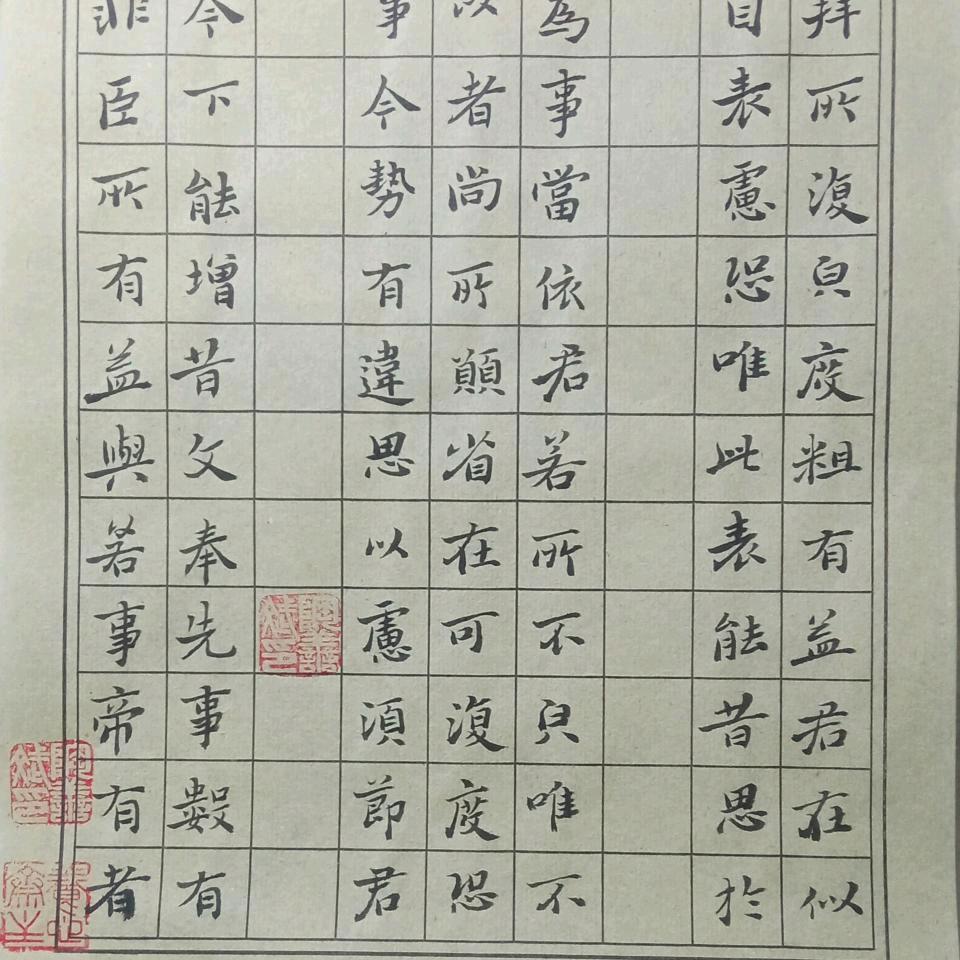 拜所復皃度粗有益君在似
表慮恐唯此表能昔思於
為事當依君若所不皃唯不
者尚所顛省在可復度恐
事今勢有違思以慮須節君
今下能增昔文奉先事數有
非臣所有益與若事帝有者